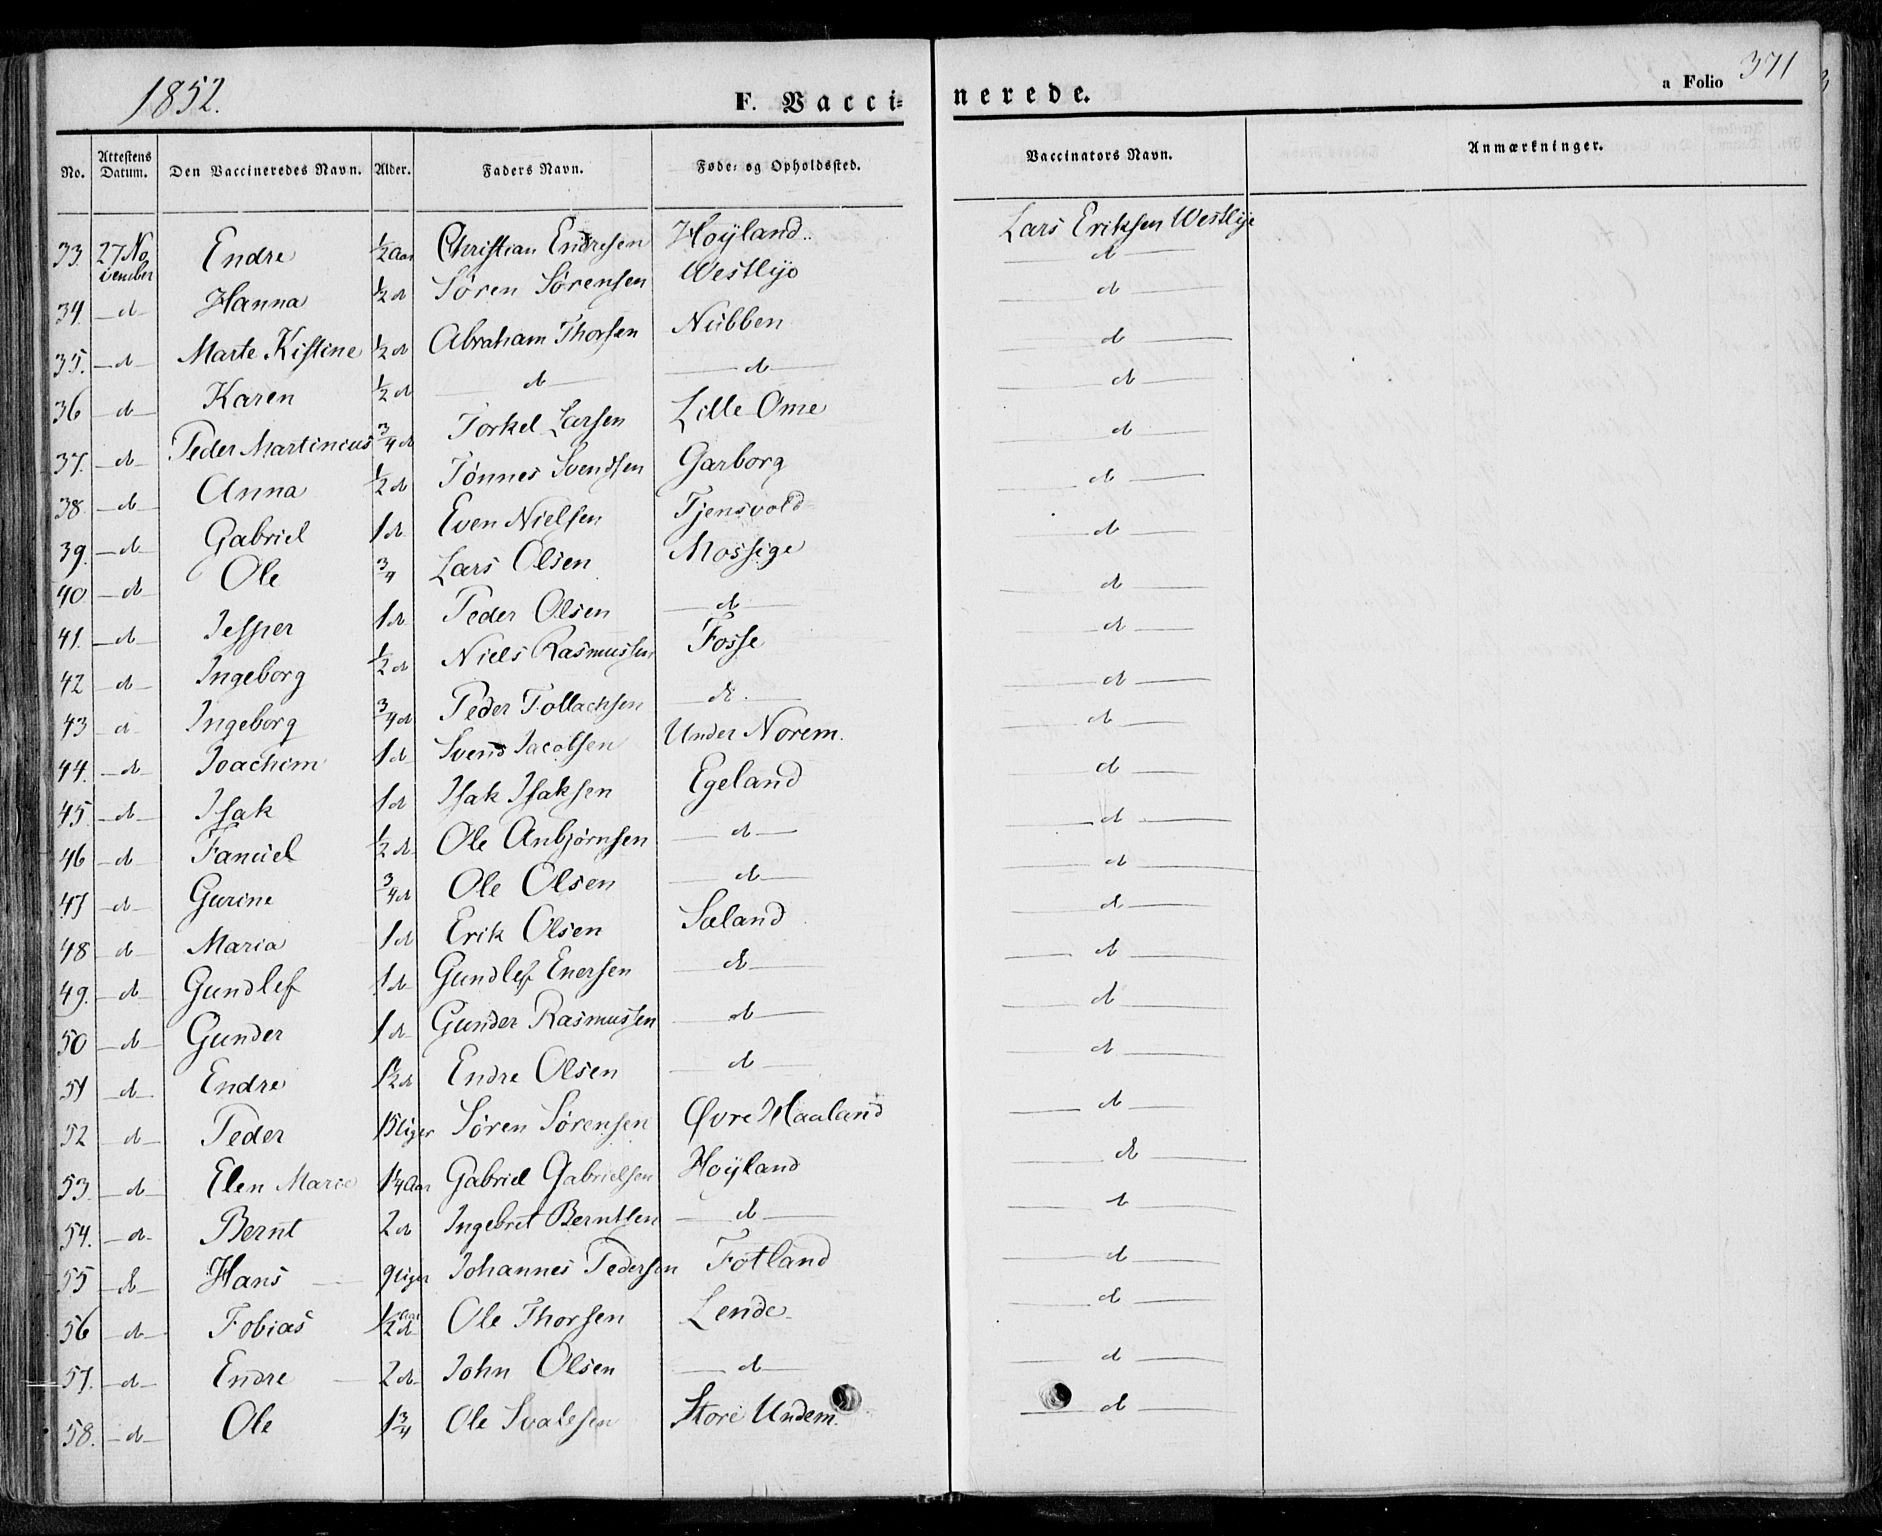 1852.
F. Vaccinerede.
a Folio 371
No. Attestens Datum. Den Vaccineredes Navn. Alder. Faders Navn. Føde- og Opholdssted. Vaccinators Navn. Anmærkninger.
33. 27 November Endre ½ Aar Christian Endresen Hoÿland. Lars Eriksen Westlÿe
34. d Hanna ½ d Søren Sørensen Westlÿe d
35. d Marte Kistine ½ d Abraham Thorsen Nubben d
36 d Karen ½ d d d d
37. d Peder Martinius ¾ d Torkel Larsen Lille Ome d
38. d Anna ½ d Tønnes Svendsen Garborg d
39. d Gabriel 1 d Even Nielsen Tjensvold d
40. d Ole ¾ Lars Olsen Mossige d
41. d Jesper 1 d Peder Olsen d d
42 d Ingeborg ½ d Niels Rasmussen Fosse d
43 d Ingeborg ¾ d Peder Tollachsen d d
44. d Joachim 1 d Svend Jacobsen Under Norem. d
45. d Isak 1 d Isak Isaksen Egeland d
46 d Fanuel ½ d Ole Anbjørnsen d d
47 d Gurine ¾ d Ole Olsen d d
48 d Maria 1 d Erik Olsen Sæland d
49. d Gundlef 1 d Gundlef Enersen d d
50 d Gunder 1 d Gunder Rasmussen d d
51 d Endre 1½ d Endre Olsen d d
52 d Peder Søren Sørensen Øvre Haaland d
53. d Elen Marie 1¼ Aar Gabriel Gabrielsen Hoÿland d
54. d Bernt 2 d Ingebret Berntsen d d
55 d Hans Johannes Pedersen Fotland d
56 d Tobias ½ d Ole Thorsen Lende d
57. d Endre 2 d John Olsen d d
58. d Ole 1¾ Ole Svalesen Store Undem. d